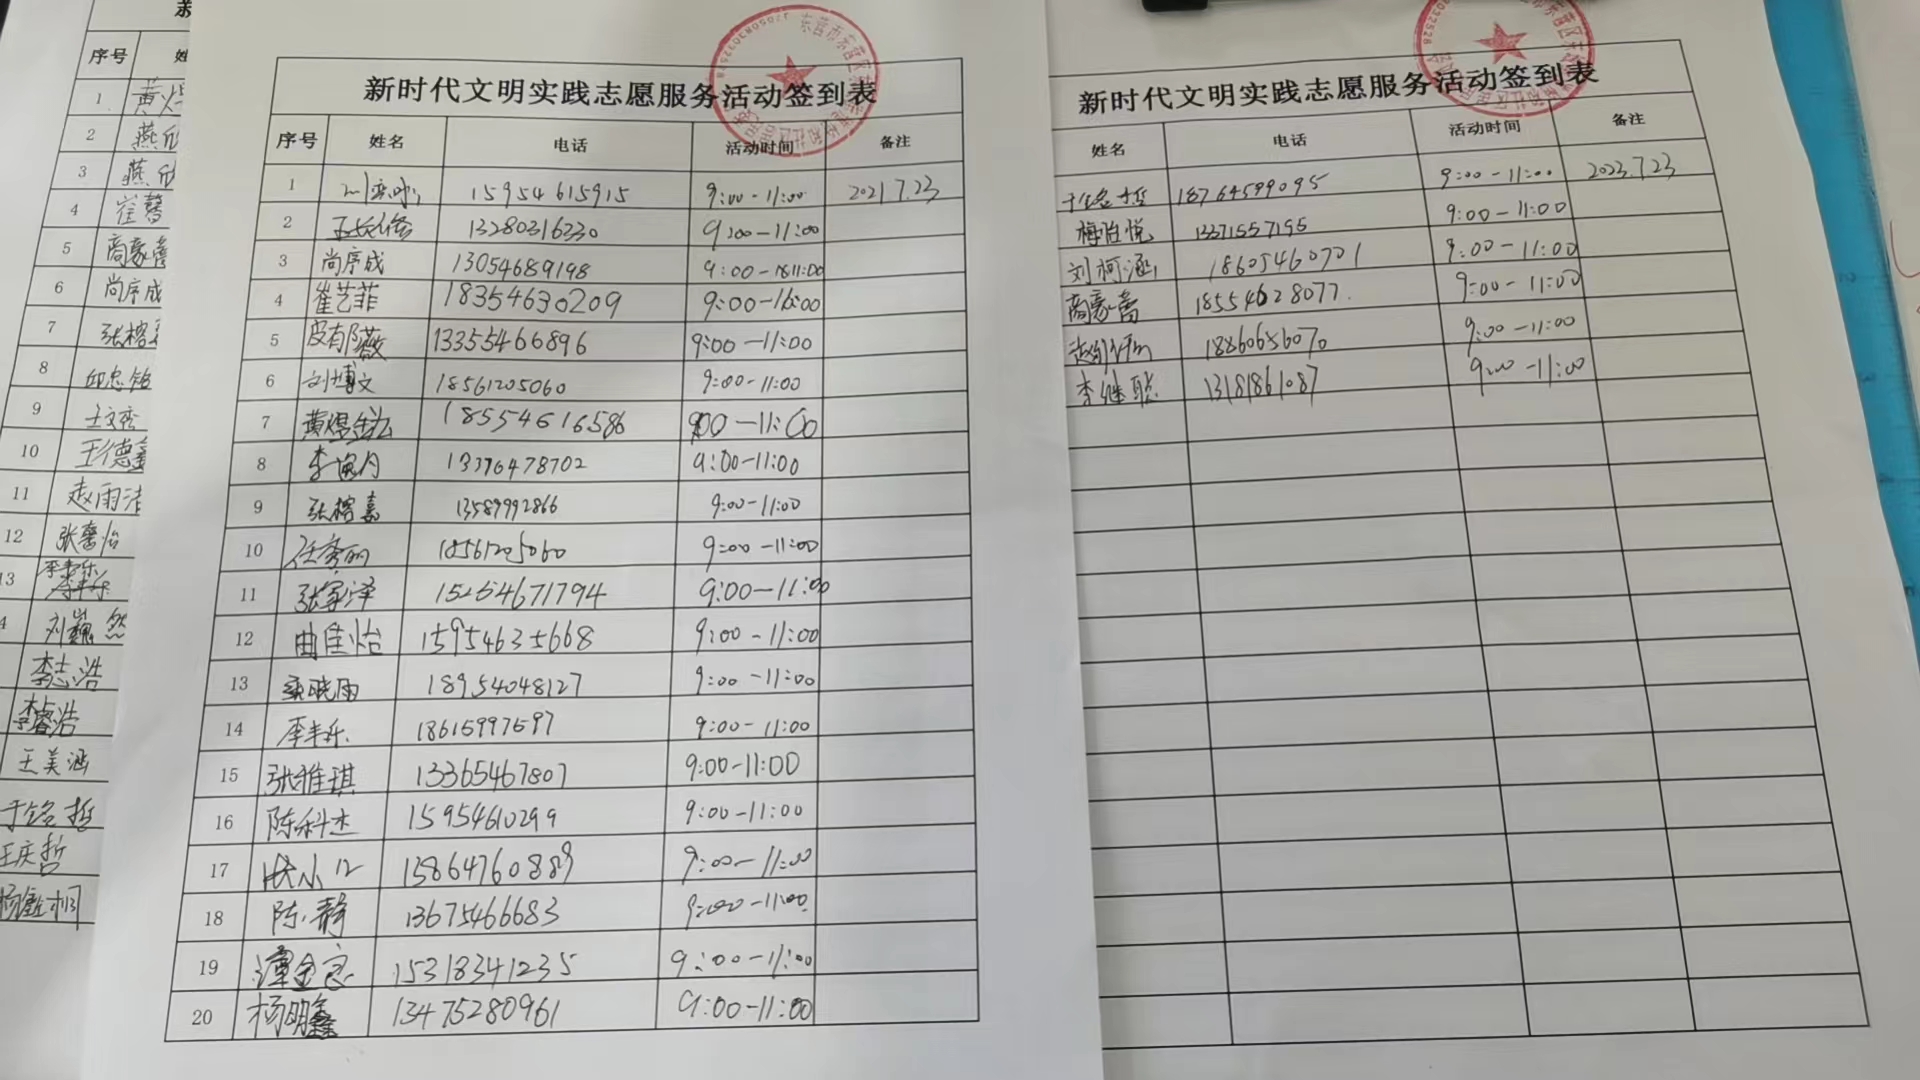 序号
1
2 燕
3 燕
4 崔馨
5 商豪蕾
6 尚序成
7 张榕
8 邱忠铭
9 王文秀
10 王德鑫
11 赵雨洁
12 张馨怡
13
4 刘巍然
李志浩
李睿浩
王美涵
于铭哲
王庆哲
新时代文明实践志愿服务活动签到表
序号 姓名 电话 活动时间 备注
1 15954615915 9:00-11:00 2021.7.23
2 13280316330 9:00-11:00
3 尚序成 13054689198 9:00-11:00
4 崔艺菲 18354630209 9:00-16:00
5 皮有陈薇 13355466896 9:00-11:00
6 刘博文 18561205060 9:00-11:00
7 黄煜 18554616586 9:00-11:00
8 13396478702 9:00-11:00
9 张榕嘉 13589992866 9:00-11:00
10 任秀丽 18561205060 9:00-11:00
11 张家泽 15254671794 9:00-11:00
12 曲佳怡 15954635668 9:00-11:00
13 晓雨 18954048127 9:00-11:00
14 李丰乐 18615997597 9:00-11:00
15 张雅琪 13365467807 9:00-11:00
16 陈科杰 15954610299 9:00-11:00
17 15864760889 9:00-11:00
18 陈静 13675466683 9:00-11:00
19 谭金良 15318341235 9:00-11:00
20 杨明鑫 13475280961 9:00-11:00
新时代文明实践志愿服务活动签到表
姓名 电话 活动时间 备注
于铭哲 18764599095 9:00-11:00 2023.7.23
梅怡悦 13371557195 9:00-11:00
刘柯涵 18605460701 9:00-11:00
商豪蕾 18554628077 9:00-11:00
18860656070 9:00-11:00
李继聪 13181861087 9:00-11:00